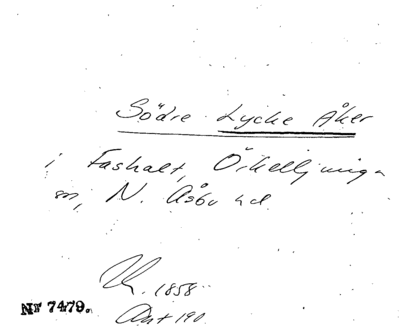 Södre Lycke Åker
i Fashalt, Örkelljunga
sn, N. Åsbo hd
1858
Nr 7479.
Akt 190